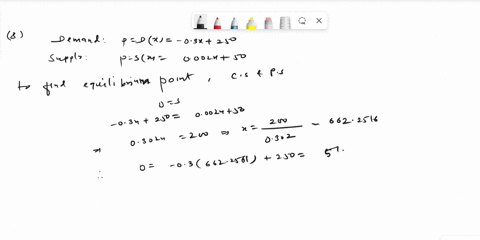 (8) Demand: p=D(x) = -0.3x+250
Supply: p=S(x)= 0.002x+50
to find equilibrium point, C.S & P.S
D=S
-0.3x + 250 = 0.002x+50
⇒ 0.302x = 200 ⇒ x = 200/0.302 = 662.2516
∴ D = -0.3(662.2516) + 250 = 51.